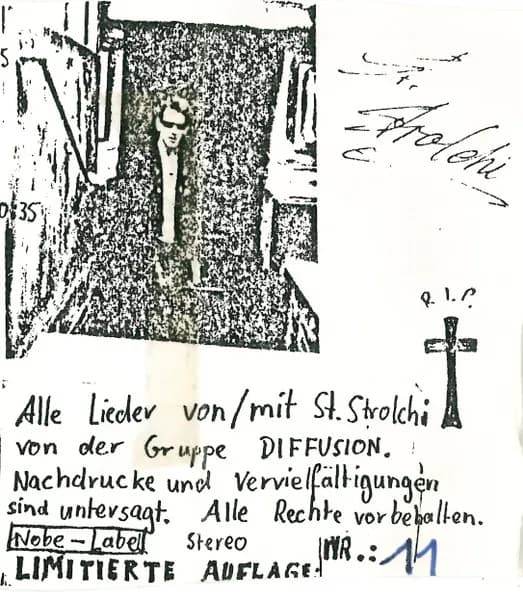 St. Strolchi
R.I.P.
Alle Lieder von/mit St. Strolchi
von der Gruppe DIFFUSION.
Nachdrucke und Vervielfältigungen
sind untersagt. Alle Rechte vorbehalten.
Nobe-Label Stereo NR.: 11
LIMITIERTE AUFLAGE.